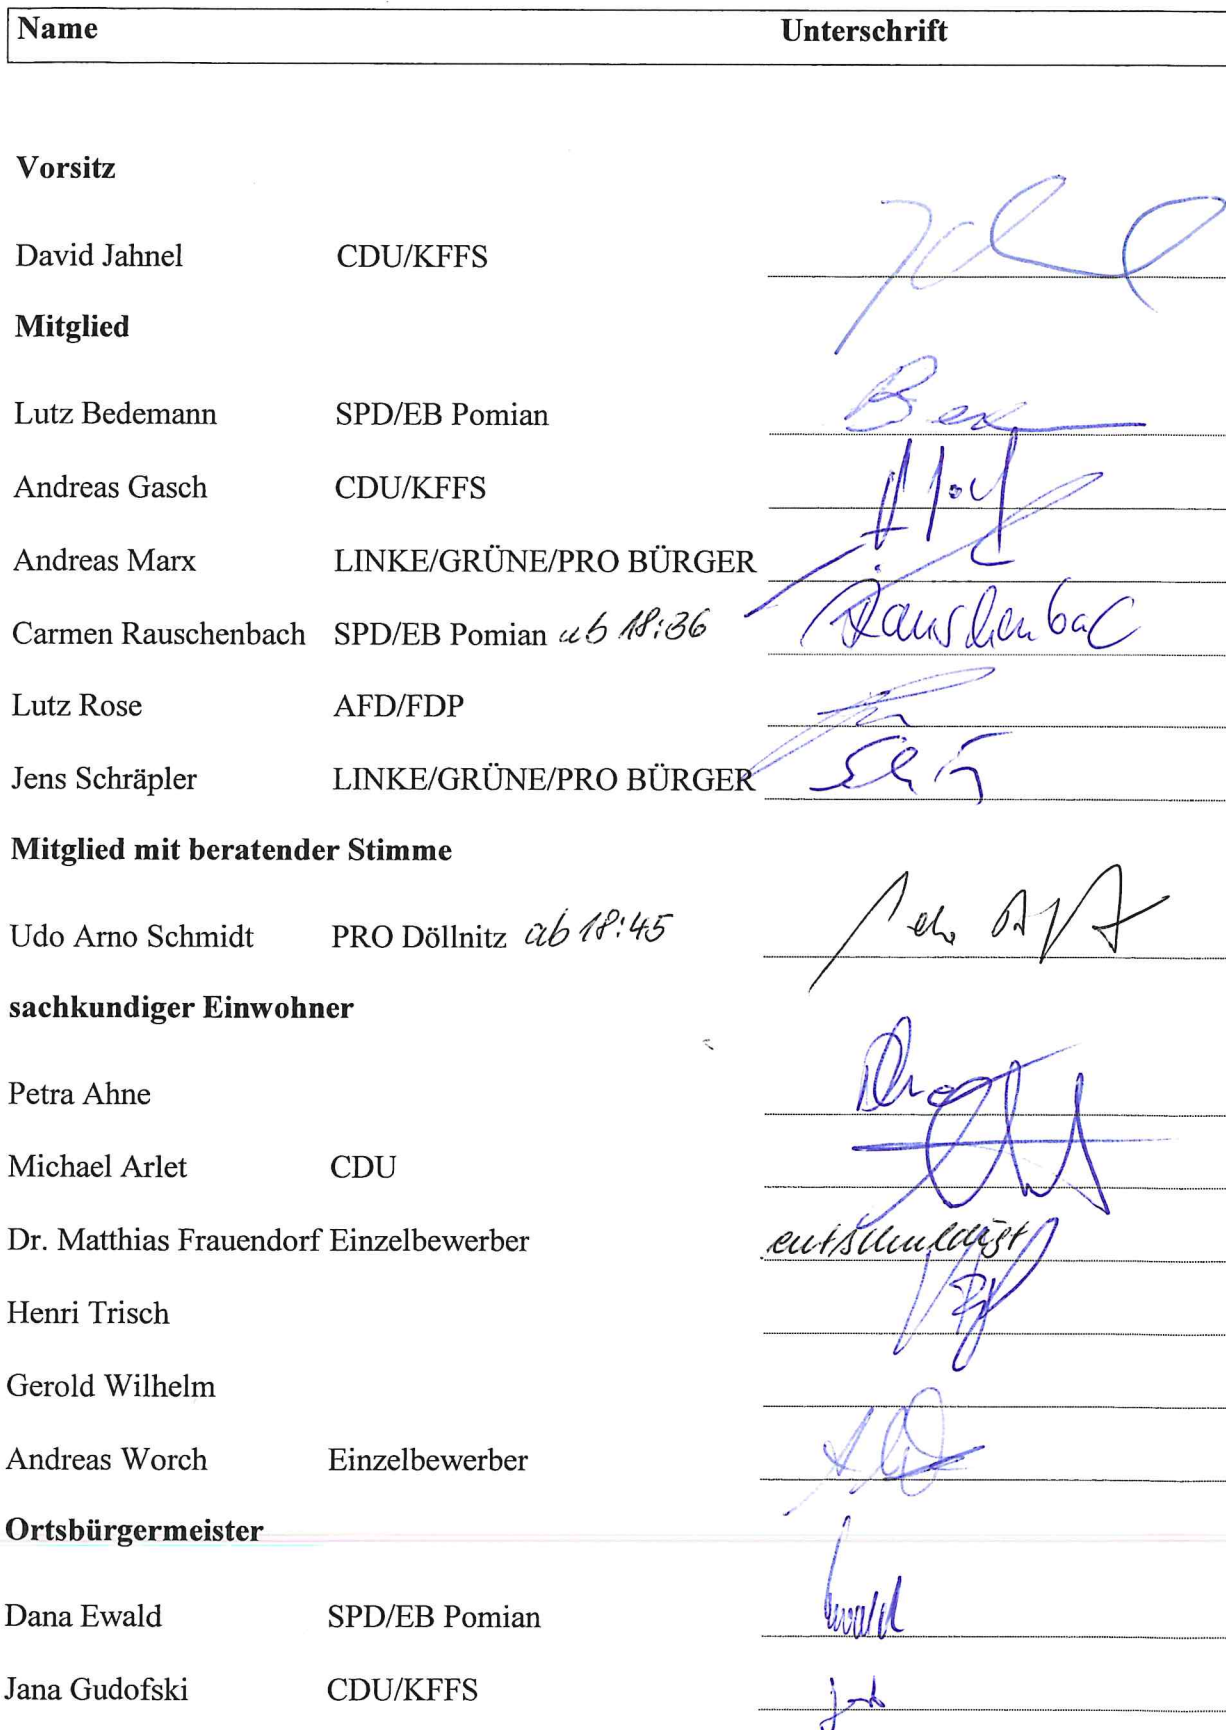 Name Unterschrift
Vorsitz
David Jahnel CDU/KFFS
Mitglied
Lutz Bedemann SPD/EB Pomian
Andreas Gasch CDU/KFFS
Andreas Marx LINKE/GRÜNE/PRO BÜRGER
Carmen Rauschenbach SPD/EB Pomian ab 18:36 Rauschenbach
Lutz Rose AFD/FDP
Jens Schräpler LINKE/GRÜNE/PRO BÜRGER
Mitglied mit beratender Stimme
Udo Arno Schmidt PRO Döllnitz ab 18:45
sachkundiger Einwohner
Petra Ahne
Michael Arlet CDU
Dr. Matthias Frauendorf Einzelbewerber entschuldigt
Henri Trisch
Gerold Wilhelm
Andreas Worch Einzelbewerber
Ortsbürgermeister
Dana Ewald SPD/EB Pomian
Jana Gudofski CDU/KFFS